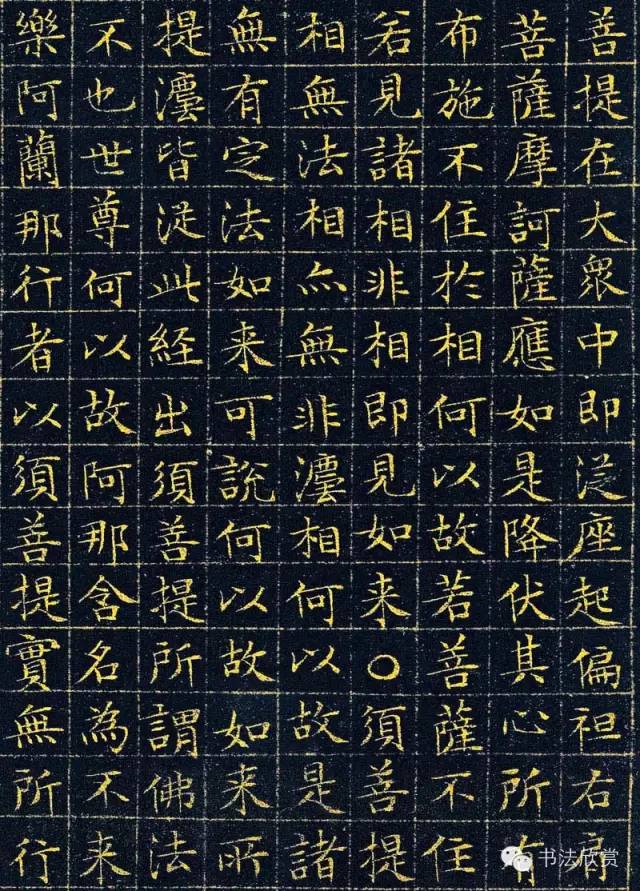 善提在大衆中即從座起偏袒右肩
菩薩摩訶薩應如是降伏其心所有
布施不住於相何以故若善薩不住
若見諸相非相即見如来〇須善提
相無法相亦無非灋相何以故是諸
無有定法如来可說何以故如来所
提灋皆從此経出須善提所謂佛法
不也世尊何以故阿那含名為不来
樂阿蘭那行者以須善提實無所行
书法欣赏